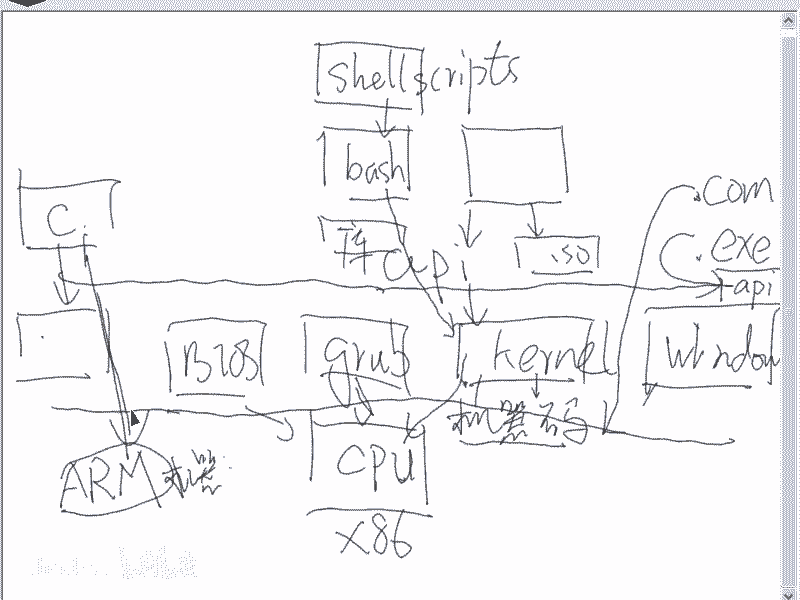 shellscripts
bash
.com
C
.iso
C.exe
api
api
BIOS
grub
kernel
window
机器码
ARM 机器
CPU
X86